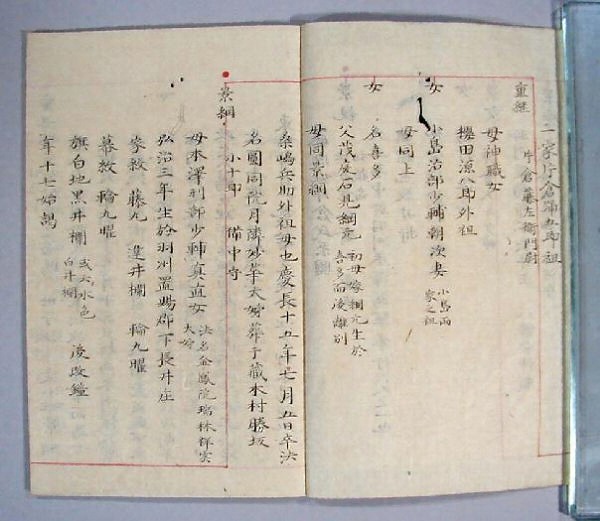 一家片倉小十郎祖
重継
片倉藤左衛門尉
母神職女
櫻田源八郎外祖
女
小島治部少輔朝次妻 小島両
家之祖
母同上
女
名喜多
父茂庭石見綱元 初母嫁綱元生於
喜多而後離別
母同景綱
桑嶋兵助外祖母也慶長十五年七月五日卒法
名圓同院月隣妙華大姉葬于蔵本村勝坂
景綱
小十郎 備中守
母本澤刑部少輔真直女 法名金鳳院瑞林祥実
大姉
弘治三年生於羽州置賜郡下長井庄
家紋 藤丸 違井欄 輪九曜
幕紋 輪九曜
旗白地黒井欄 或六水色
白井欄 後改鐘
年十七始謁